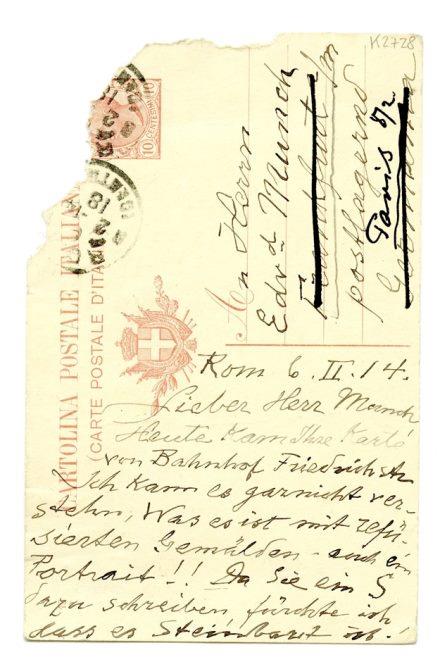 K2728
An Herrn
Edv d Munch
Frankfurt a/m
postlagernd
Paris
Germania
10 CENTESIMI 10
CARTOLINA POSTALE ITALIA
(CARTE POSTALE D'ITA
Rom 6. II. 14.
Lieber Herr Munch
Heute kam Ihre Karte
von Bahnhof Friedrichstr
Ich kann es garnicht ver-
stehn, Was es ist mit refü-
sierten Gemälden - auch ein
Portrait!! Da Sie ein S
dazu schreiben fürchte ich
dass es Steinbart ist!